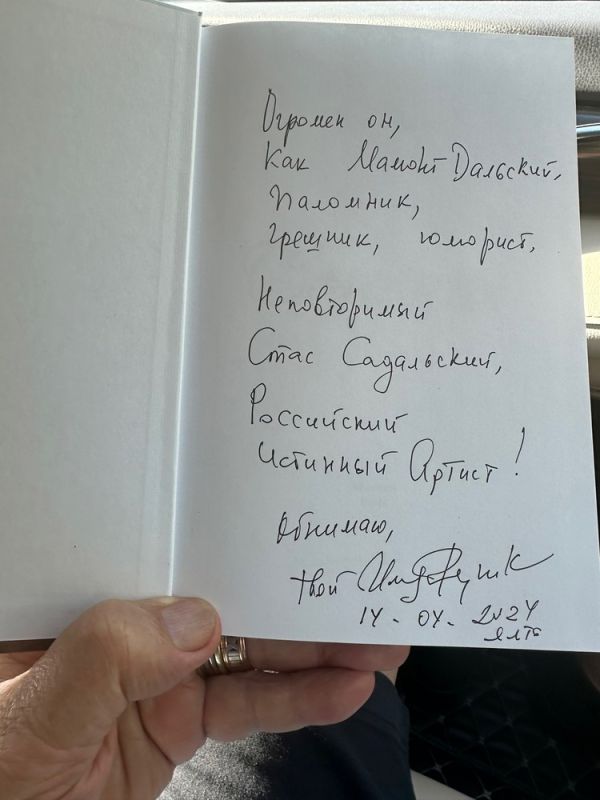 Огромен он,
Как Мамонт Дальский,
Паломник,
Грешник, юморист,
Неповторимый
Стас Садальский,
Российский
Истинный Артист!
Обнимаю,
твой
14 - 04 - 2024
Ялта